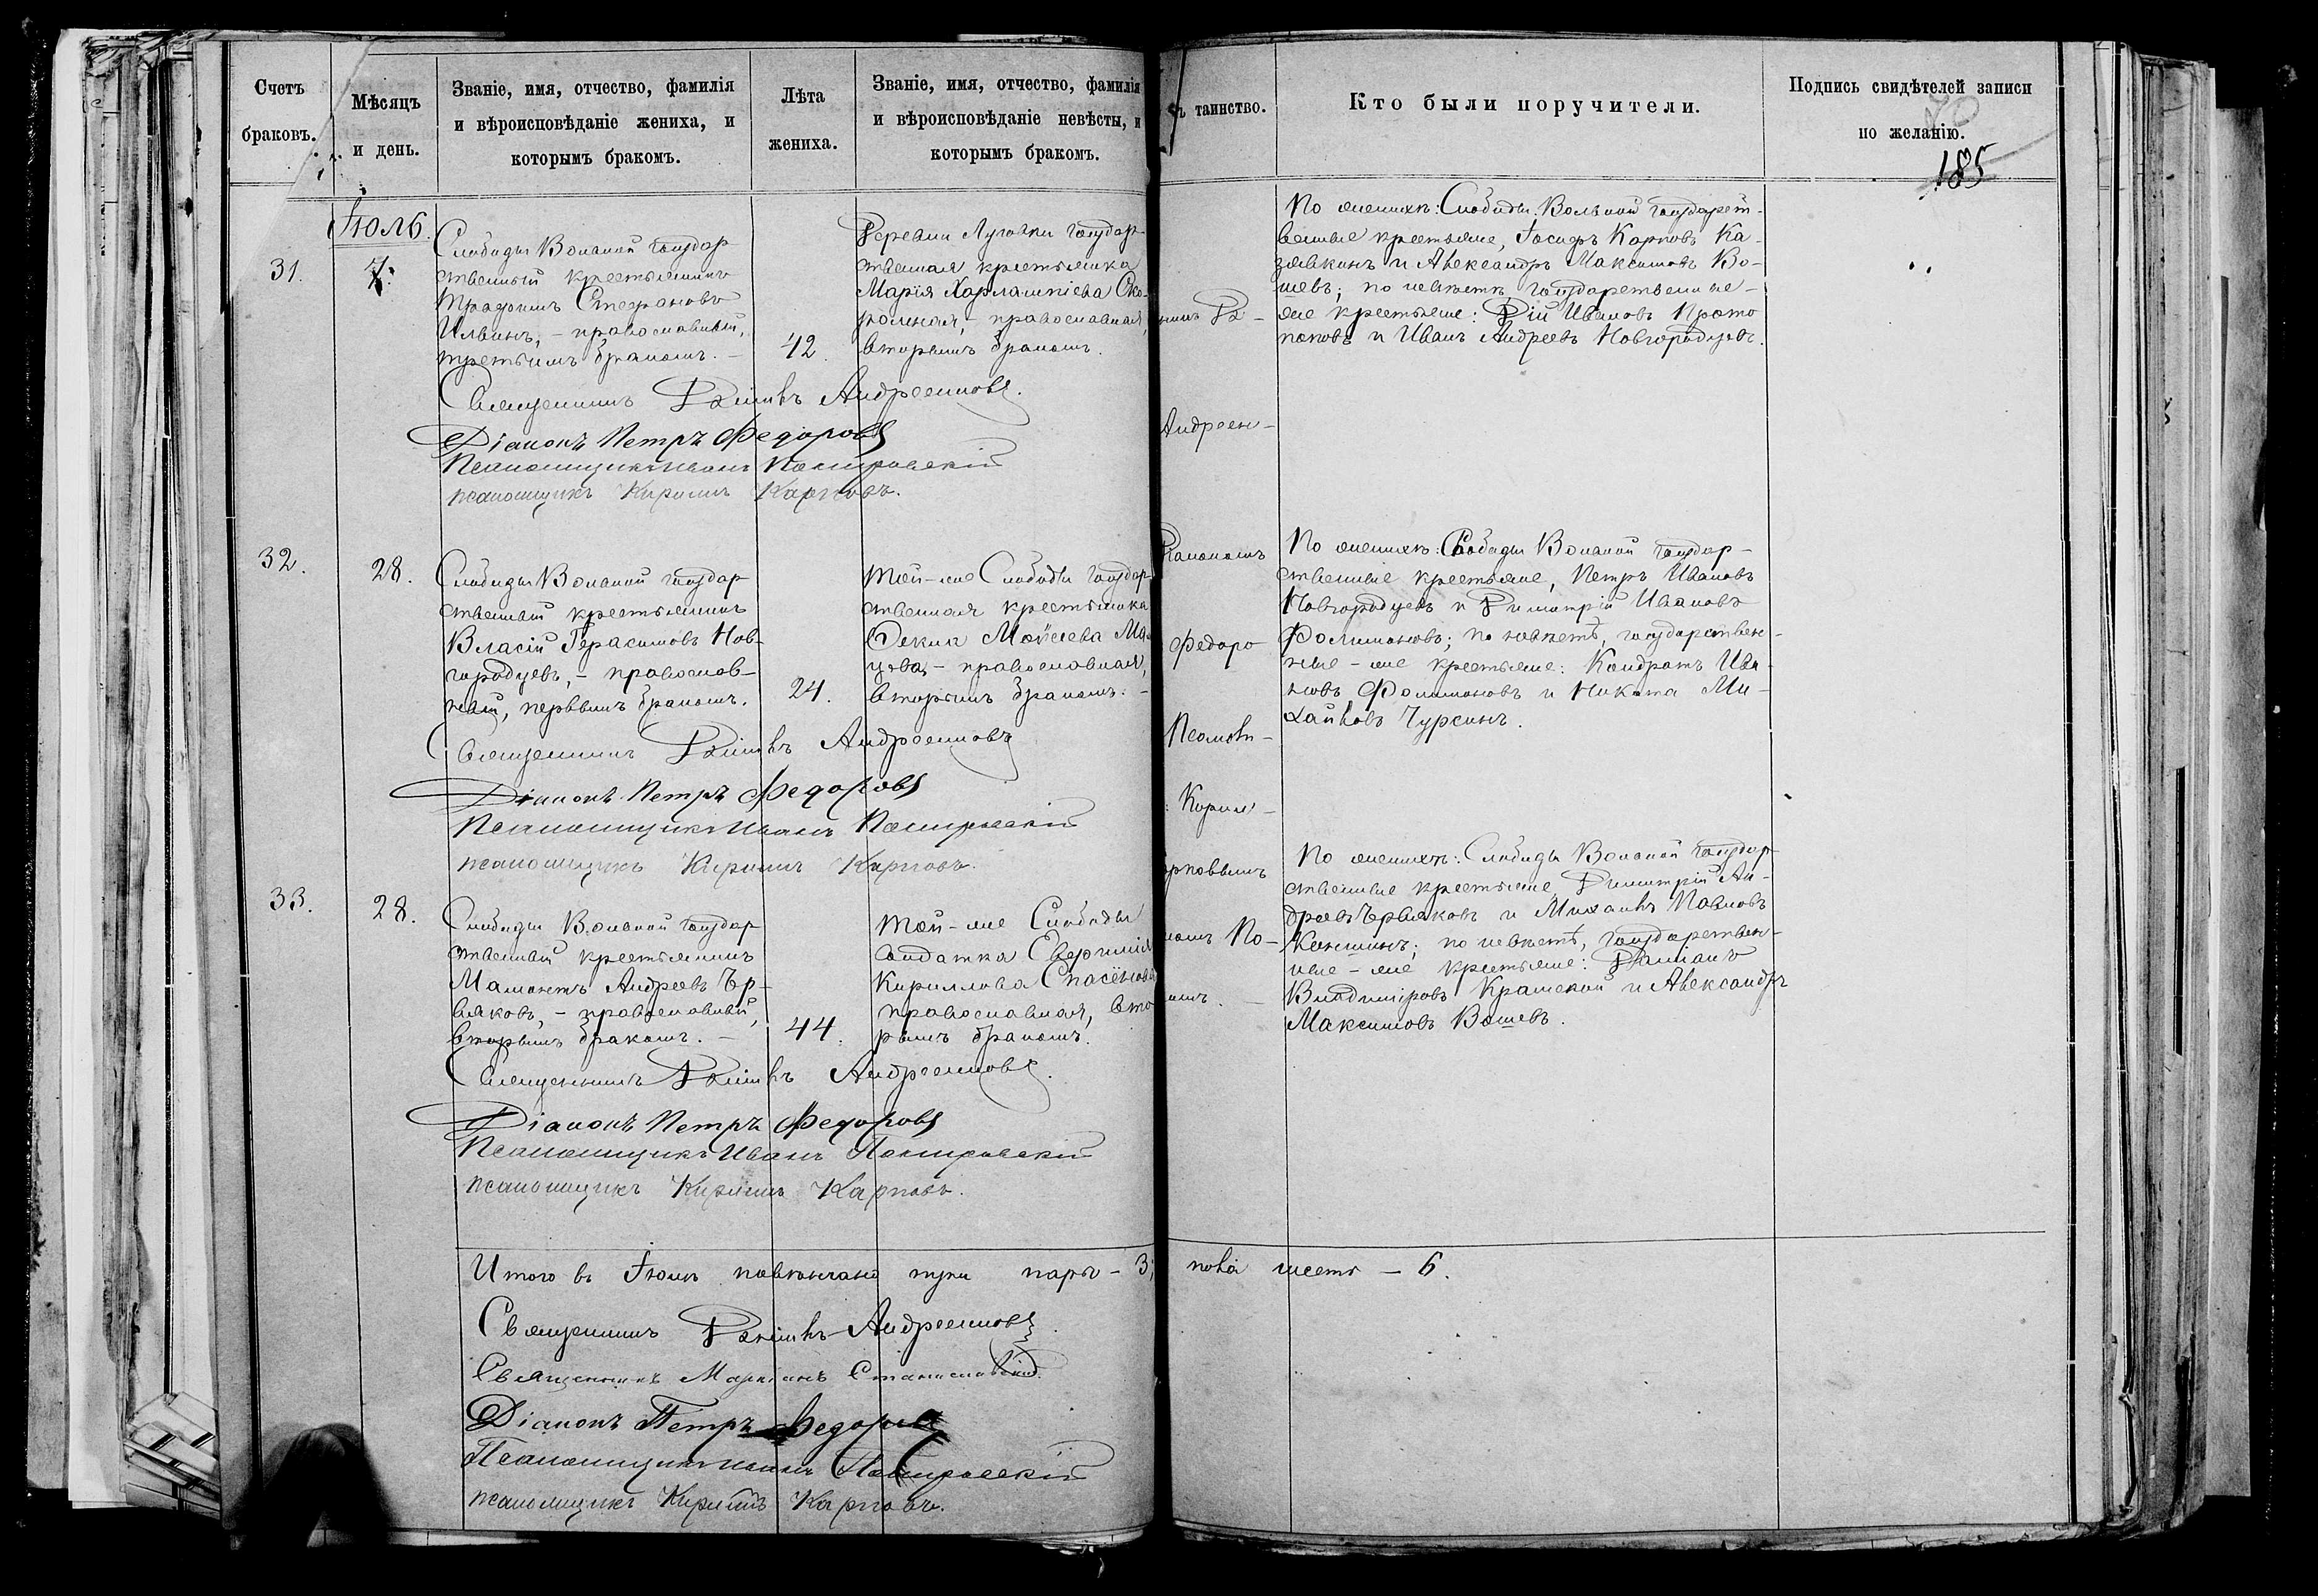 Счетъ
браковъ.
Мѣсяцъ
и день.
Званіе, имя, отчество, фамилія
и вѣроисповѣданіе жениха, и
которымъ бракомъ.
Лѣта
жениха.
Званіе, имя, отчество, фамилія
и вѣроисповѣданіе невѣсты, и
которымъ бракомъ.
таинство.
Кто были поручители.
Подпись свидѣтелей записи
по желанію.
185
Іюль.
31.
7.
Слободы Вольной государ
ственный крестьянинъ
Трофимъ Стефановъ
Ильинъ, – православный,
третьимъ бракомъ. –
42
Деревни Луговки государ-
ственная крестьянка
Марія Харлампіева
православная,
вторымъ бракомъ.
По женихѣ: Слободы Вольной государст-
венные крестьяне, Іосифъ Карповъ Ка-
зявкинъ и Александръ Максимовъ Во-
шевъ; по невѣстѣ государственные –
же крестьяне: Ивановъ Прото
поповъ и Иванъ Андреевъ Новгородцевъ.
Священникъ Андреенковъ.
Діаконъ Петръ Федоровъ
Псаломщикъ Иванъ Покировскій
псаломщикъ Кирилъ Карповъ.
Андреен-
32.
28.
Слободы Вольной государ
ственный крестьянинъ
Власій Герасимовъ Нов-
городцевъ, – православ-
ный, первымъ бракомъ.
24.
Той-же Слободы государ
ственная крестьянка
Фекла Мойсеева Ма-
цева, – православная,
вторымъ бракомъ. –
Діакономъ
Федоро
Псаломщ-
Кирил-
рповымъ
По женихѣ: Слободы Вольной государ-
ственные крестьяне, Петръ Ивановъ
Новгородцевъ и Димитрій Ивановъ
Фолимоновъ; по невѣстѣ, государствен-
ные – же крестьяне: Кондратъ Ива-
новъ Фолимоновъ и Никита Ми-
хайловъ Чурсинъ.
Священникъ Андреенковъ
Діаконъ Петръ Федоровъ
Псаломщикъ Иванъ Покировскій
псаломщикъ Кирилъ Карповъ.
33.
28.
Слободы Вольной государ
ственный крестьянинъ
Мамонтъ Андреевъ Ер-
ваковъ, – православный,
вторымъ бракомъ. –
44.
Той-же Слободы
солдатка Евфимія
Кириллова Спасёнова
православная, вто
рымъ бракомъ.
По женихѣ: Слободы Вольной государ
ственные крестьяне Димитрій Ан-
дреевъ и Михаилъ Павловъ
Коншинъ; по невѣстѣ, государствен-
ные – же крестьяне: Даміанъ
Владиміровъ Крамской и Александръ
Максимовъ Вошевъ.
Священникъ Андреенковъ.
Діаконъ Петръ Федоровъ
Псаломщикъ Иванъ Покировскій
псаломщикъ Кирилъ Карповъ.
Итого въ Іюлѣ повѣнчано три пары – 3;
шесть – 6.
Священникъ Андреенковъ
Священникъ Станиславскій
Діаконъ Петръ Федоровъ
Псаломщикъ Иванъ Покировскій
псаломщикъ Кирилъ Карповъ.